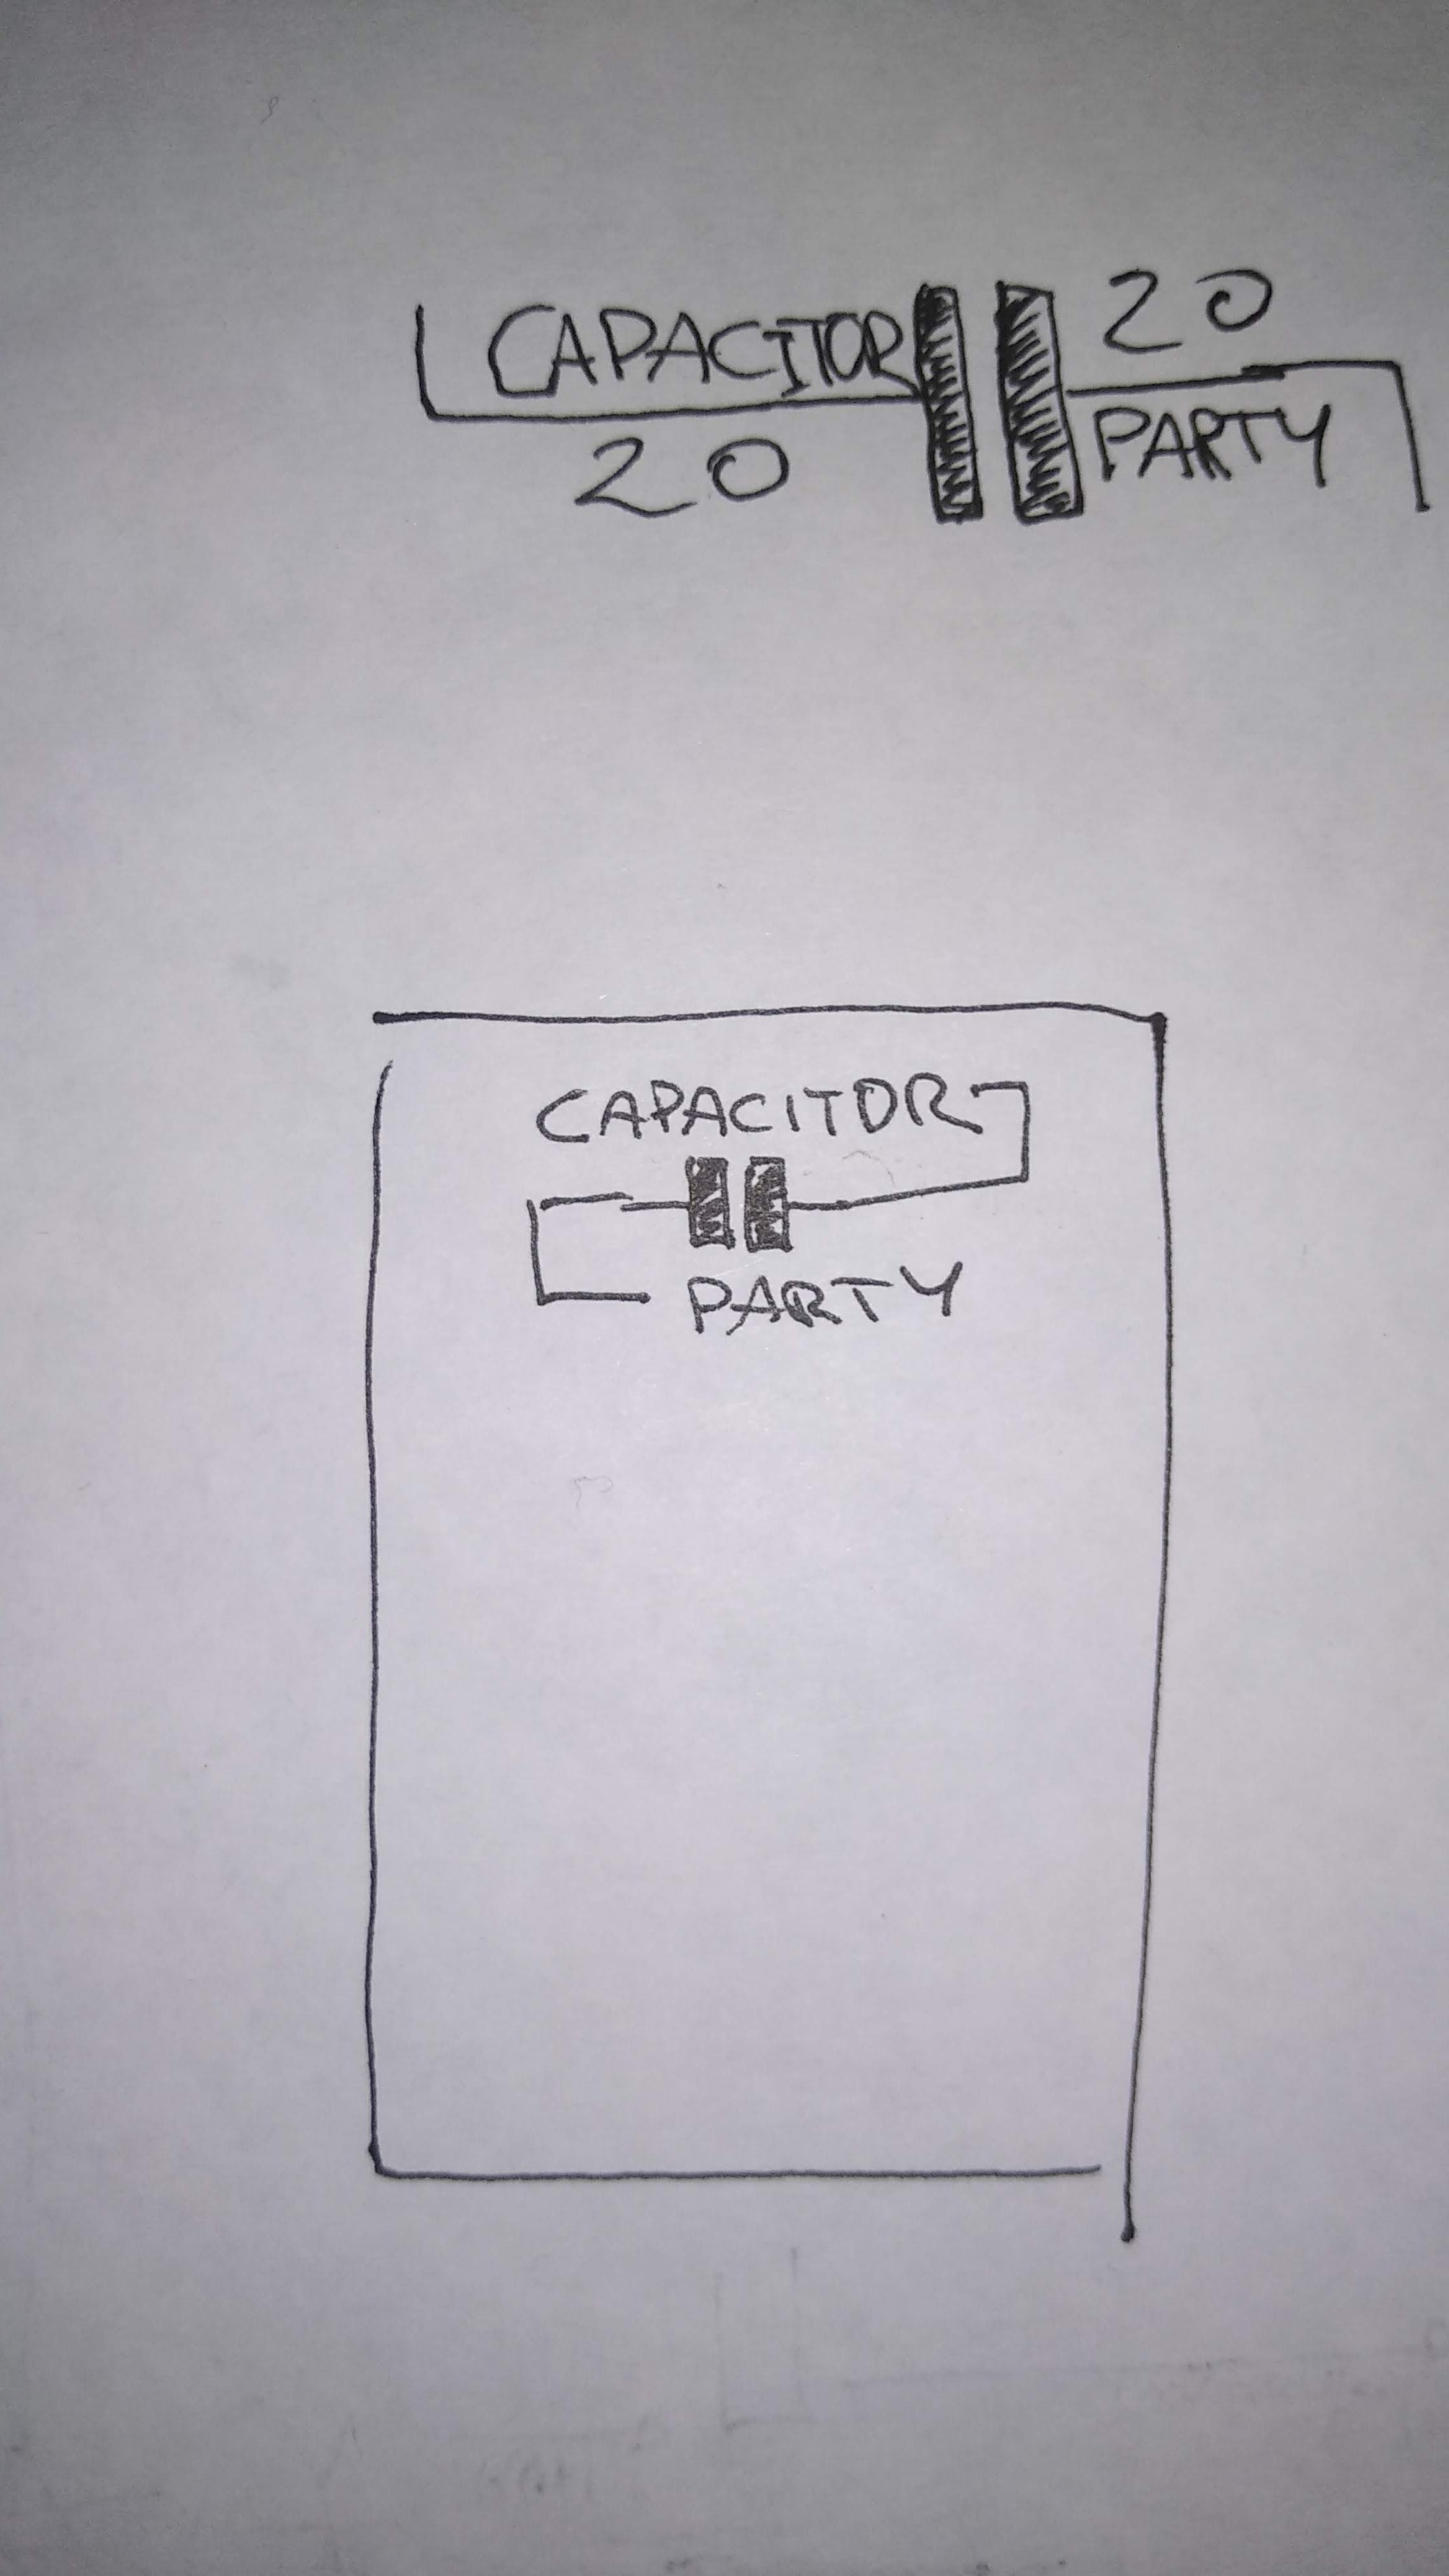 CAPACITOR 20
20 PARTY
CAPACITOR
PARTY